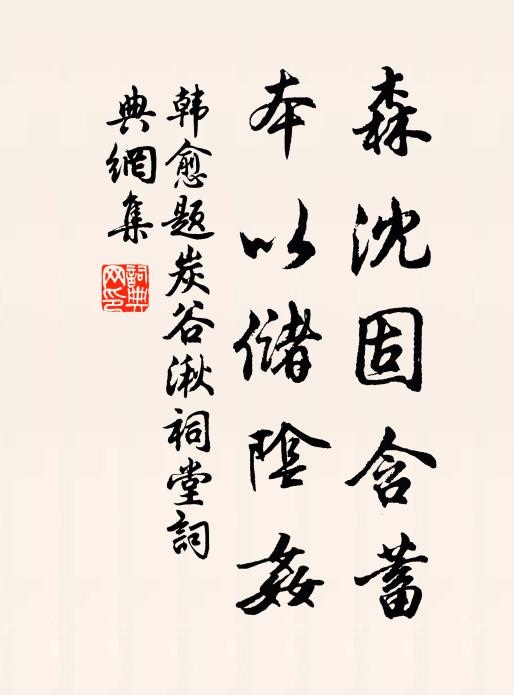 森沈固含蓄
本以儲陰姦
韩愈题炭谷湫祠堂詞
典網集
詞典網印